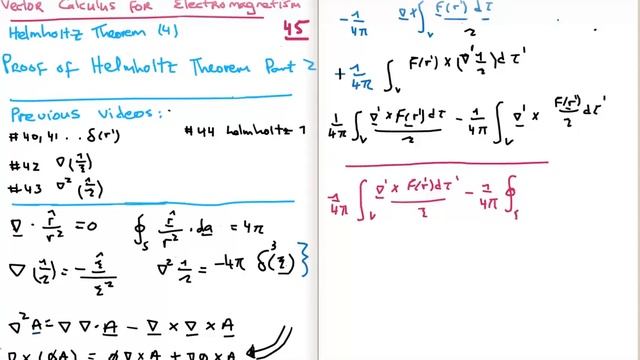 Vector Calculus for Electromagnetism
Helmholtz Theorem (4) 45
Proof of Helmholtz Theorem Part 2
Previous videos:
#40,41.. δ(r') #44 helmholtz 1
#42 ∇(1/r)
#43 ∇²(1/r)
∇ · r̂/r² = 0 ∮s r̂/r² · da = 4π
∇(1/r) = - r̂/r² ∇² 1/r = -4π δ³(r)
∇²A = ∇∇·A - ∇×∇×A
∇×(φA) = φ∇×A + ∇φ×A
-1/4π ∇×∫v F(r') dτ'/r
+1/4π ∫v F(r') × (∇' 1/r) dτ'
1/4π ∫v ∇'×F(r')dτ'/r - 1/4π ∫v ∇' × F(r')/r dτ'
1/4π ∫v ∇'×F(r')dτ'/r - 1/4π ∮s